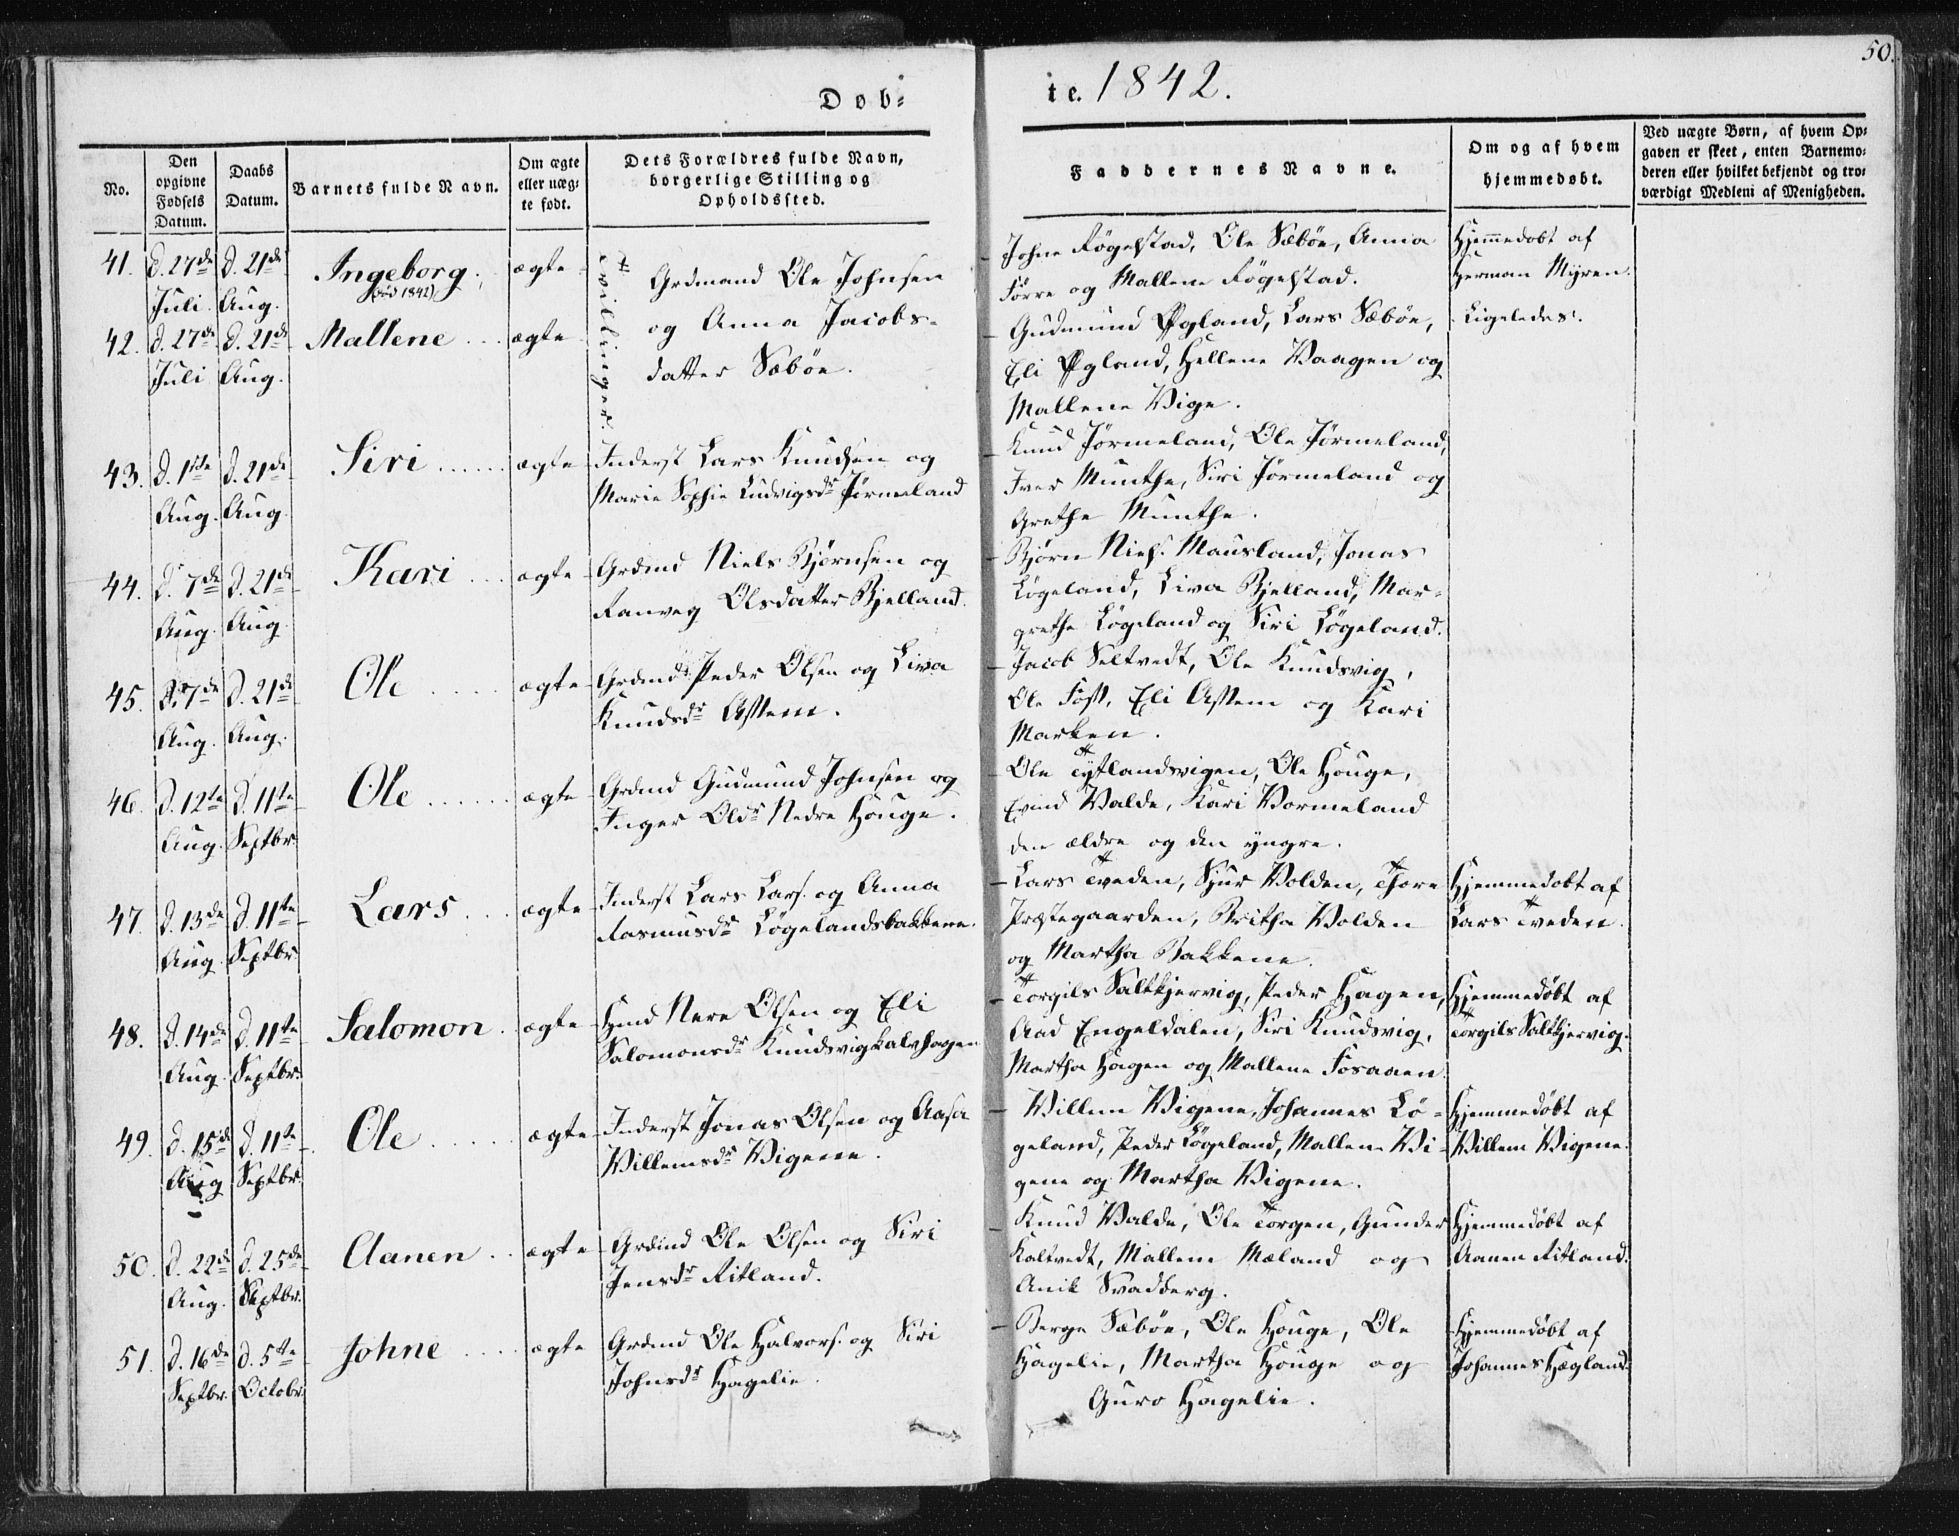 50.
Døb=
te. 1842.
No.
Den
opgivne
Fødsels
Datum.
Daabs
Datum.
Barnets fulde Navn.
Om ægte
eller uæg=
te født.
Dets Forældres fulde Navn,
borgerlige Stilling og
Opholdssted.
Faddernes Navne.
Om og af hvem
hjemmedøbt.
Ved uægte Børn, af hvem Op=
gaven er skeet, enten Barnemo=
deren eller hvilket bekjendt og tro=
værdigt Medlem af Menigheden.
41. d. 27de d. 21de Ingeborg. ægte
Juli. Aug. (død 1842)
Tvillinger.
Grdmand Ole Johnsen
og Anna Jacobs=
datter Sæbøe.
Johne Føgelstad, Ole Sæbøe, Anna
Førre og Mallene Føgelstad.
Hjemmedøbt af
Herman Myren.
42. d. 27de d. 21de Mallene ægte
Juli Aug.
Gudmund Øgland, Lars Sæbøe,
Eli Øgland, Hellene Vaagen og
Mallene Vige.
Ligeledes.
43. d. 1ste d. 21de Siri ægte
Aug. Aug.
Inderst Lars Knudsen og
Marie Sophie Ludvigsdr Jørmeland
Knud Jørmeland, Ole Jørmeland,
Iver Munthe, Siri Jørmeland og
Grethe Munthe.
44. d. 7de d. 21de Kari ægte
Aug. Aug.
Grdmd Niels Bjørnsen og
Ranveg Olsdatter Bjelland.
Bjørn Niels. Mausland, Jonas
Løgeland, Liva Bjelland, Mar=
grethe Løgeland og Siri Løgeland.
45. d. 7de d. 21de Ole ægte
Aug. Aug.
Grdmd Peder Olsen og Liva
Knudsdr Østem.
Jacob Seltvedt, Ole Knudsvig,
Ole Foss, Eli Østem og Kari
Marken.
46. d. 12te d. 11te Ole ægte
Aug. Septbr.
Grdmd Gudmund Johnsen og
Inger Olsdr Nedre Houge.
Ole Tytlandsvigen, Ole Houge,
Evind Valde, Kari Vormeland
den ældre og den yngre.
47. d. 13de d. 11te Lars ægte
Aug. Septbr
Inderst Lars Lars. og Anna
Rasmusdr Løgelandsbakkene.
Lars Tveden, Sjur Volden, Thore
Præstegaarden, Britha Volden
og Martha Bakkene.
Hjemmedøbt af
Lars Tveden.
48. d. 14de d. 11te Salomon ægte
Aug. Septbr.
Hmd Nere Olsen og Eli
Salomonsdr Knudsvigkalvhagen
Torgils Saltkjervig, Peder Hagen,
Aad Engeldalen, Siri Knudsvig,
Martha Hagen og Mallene Fosaaen.
Hjemmedøbt af
Torgils Saltkjervig.
49. d. 15de d. 11te Ole ægte
Aug Septbr.
Inderst Jonas Olsen og Aasa
Willemsdr Vigene.
Willem Vigene, Johannes Lø=
geland, Peder Løgeland, Mallene Vi=
gene og Martha Vigene.
Hjemmedøbt af
Willem Vigene.
50. d. 22de d. 25de Aanen ægte
Aug. Septbr.
Grdmd Ole Olsen og Siri
Jensdr Ritland.
Knud Valde, Ole Torgen, Gunder
Kaltvedt, Mallene Mæland og
Anik Svadberg.
Hjemmedøbt af
Aanen Ritland.
51. d. 16de d. 5te Johne ægte
Septbr. Octobr.
Grdmd Ole Halvors. og Siri
Johnsdr Hagelie.
Berge Sæbøe, Ole Houge, Ole
Hagelie, Martha Houge og
Guro Hagelie.
Hjemmedøbt af
Johannes Hægland.